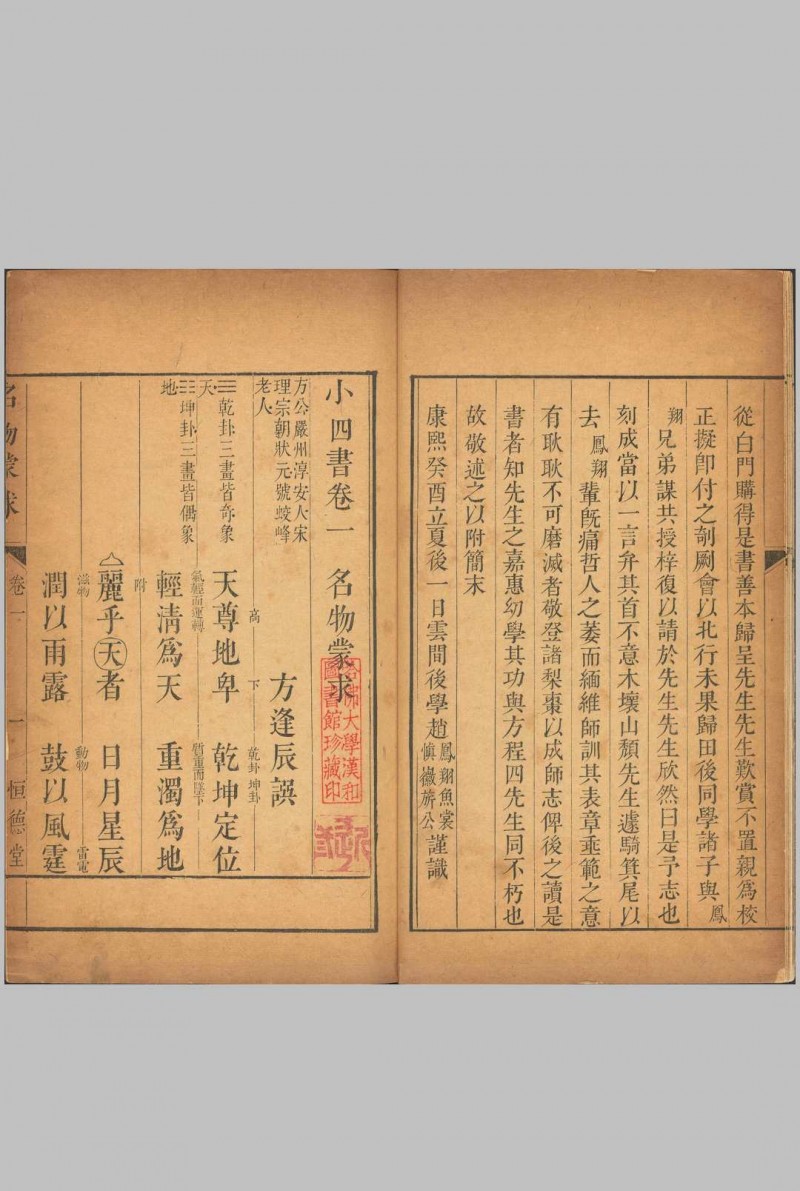 從白門購得是書善本歸呈先生先生歎賞不置親為校
正擬卽付之剞劂會以北行未果歸田後同學諸子與鳳
翔兄弟謀共授梓復以請於先生先生欣然曰是予志也
刻成當以一言弁其首不意木壞山頹先生遽騎箕尾以
去鳳翔輩旣痛哲人之萎而緬維師訓其表章垂範之意
有耿耿不可磨滅者敬登諸梨棗以成師志俾後之讀是
書者知先生之嘉惠幼學其功與方程四先生同不朽也
故敬述之以附簡末
康熙癸酉立夏後一日雲間後學趙鳳翔魚裳慎徽旂公謹識
小四書卷一 名物蒙求
哈佛大學漢和圖書館珍藏印
方公嚴州淳安人宋
理宗朝狀元號蛟峰
老人
方逢辰譔
高 下 乾卦 坤卦
☰乾卦三畫皆奇象
天
天尊地卑 乾坤定位
氣輕而運轉 質重而墜下
☷坤卦三畫皆偶象
地
輕淸爲天 重濁爲地
附
麗乎天者 日月星辰
滋物 動物 雷電
潤以雨露 鼓以風霆
名物蒙求 卷一 一 恒德堂